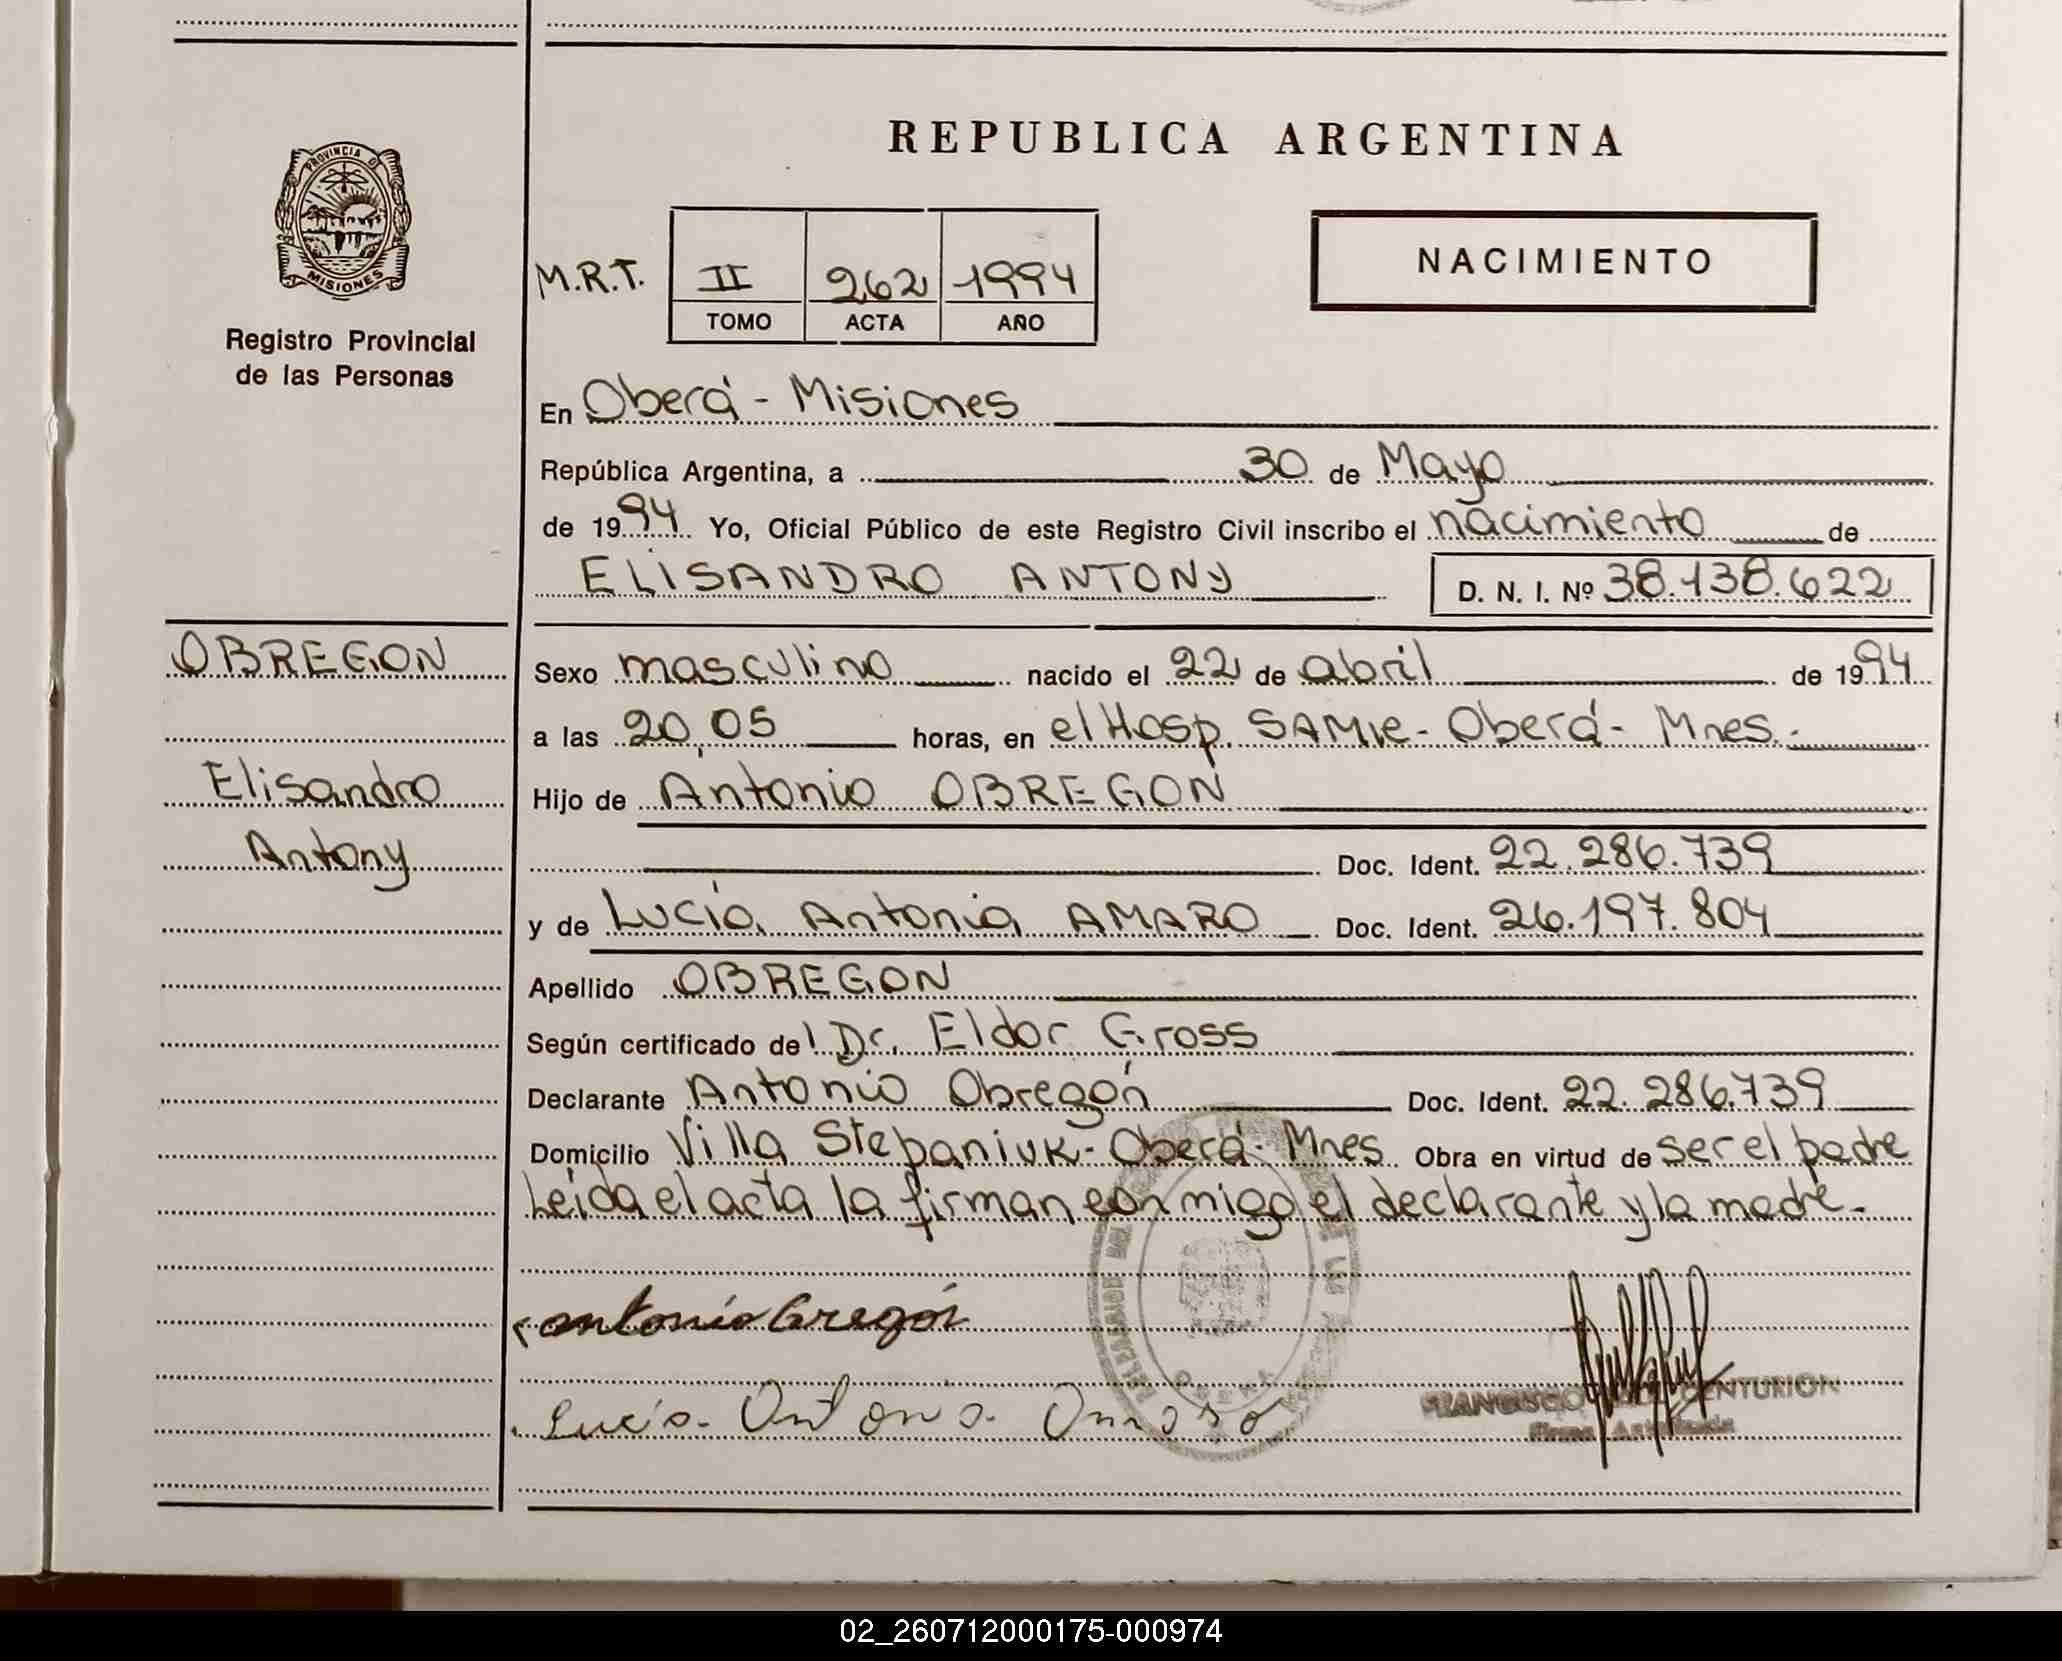 REPUBLICA ARGENTINA
PROVINCIA D
MISIONES
Registro Provincial
de las Personas
M.R.T. II 262 1994
TOMO ACTA AÑO
NACIMIENTO
En Oberá - Misiones
República Argentina, a 30 de Mayo
de 1994 Yo, Oficial Público de este Registro Civil inscribo el nacimiento de
ELISANDRO ANTONY D. N. I. Nº 38.138.622
OBREGON
Elisandro
Antony
Sexo masculino nacido el 22 de abril de 1994
a las 20,05 horas, en el Hosp. SAMIC - Oberá - Mnes.-
Hijo de Antonio OBREGON
Doc. Ident. 22.286.739
y de Lucía Antonia AMARO Doc. Ident. 26.197.804
Apellido OBREGON
Según certificado del Dr. Eldor Gross
Declarante Antonio Obregón Doc. Ident. 22.286.739
Domicilio Villa Stepaniuk - Oberá - Mnes Obra en virtud de ser el padre
Leída el acta la firman conmigo el declarante y la madre.
antonio Oregón
Lucia Antonia Amaro
CENTURION
02_260712000175-000974